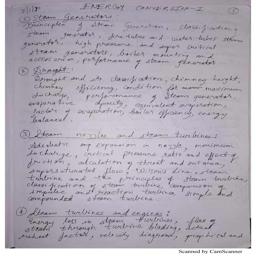 ENERGY CONVERSION-I
① Steam Generators
Principles of steam generation, classification,
steam generator, fire tubes and water tubes steam
generator, high pressure and super critical
steam generators, boiler mounting and
accessories, performance of steam generator
② Draught:
Draught and its classification, chimney height,
chimney efficiency, condition for maximum
discharge, performance of steam generator
evaporative capacity, equivalent evaporation,
factor of evaporation, boiler efficiency, energy
balance.
③ Steam nozzles and steam turbines
Adiabatic expansion in nozzle, maximum
discharge, critical pressure ratio and effect of
friction, calculation of throat and exit areas,
supersaturated flow, steam
turbine and the principles of steam turbine,
classification of steam turbine, comparison of
impulse and reaction turbine simple and
compounded steam turbine
④ Steam turbines and engines:
Energy loss in steam turbines, flow of
steam through turbine blading,
reheat factor, velocity diagrams, graphical and
Scanned by CamScanner